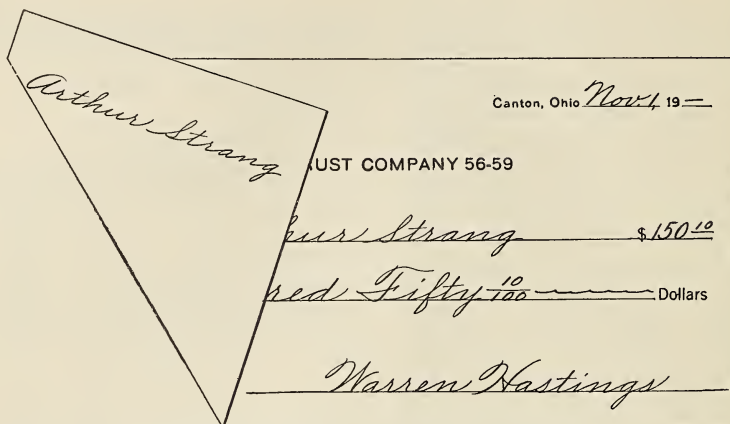 Arthur Strang
Canton, Ohio Nov. 1, 19 —
UST COMPANY 56-59
hur Strang $ 150 10
red Fifty 10/100 Dollars
Warren Hastings